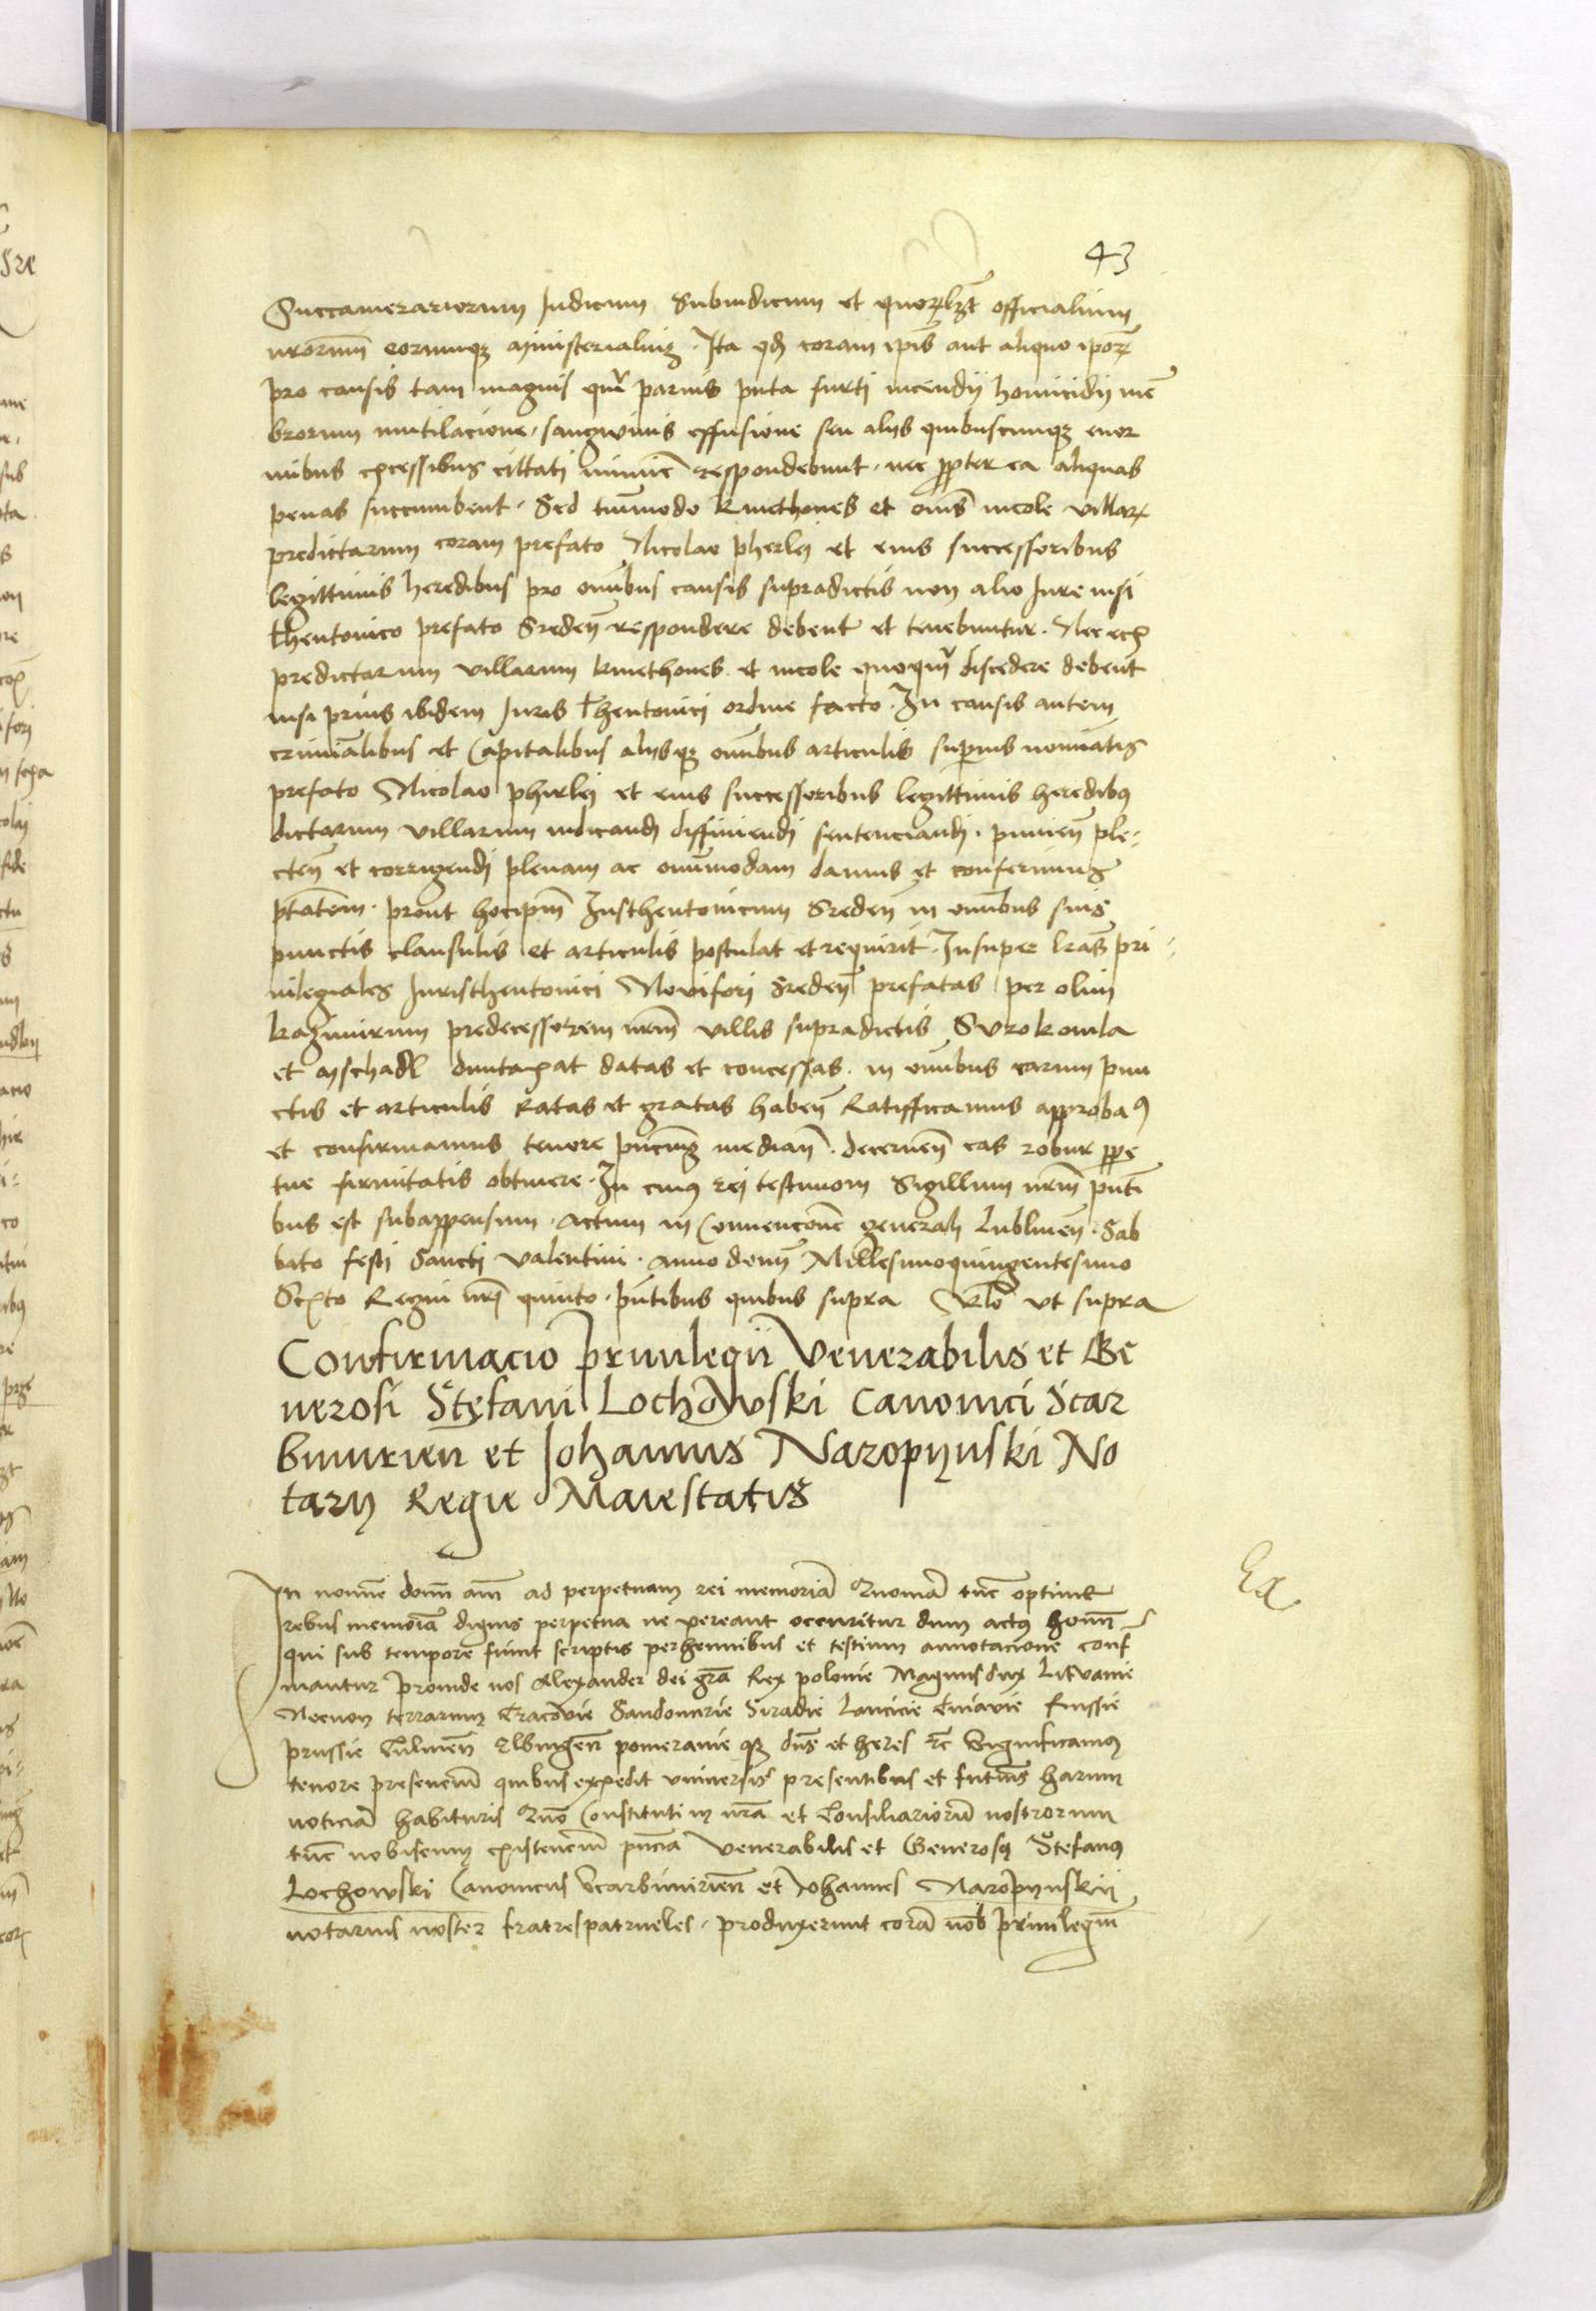 43
Succamerariorum Judicum Subiudicum et quorzlzt officialium
nrorum eorumqz ministerialium. Ita qd coram ipis aut aliquo ipor
pro causis tam magnis qm parvis puta furti incendij homicidij mem
brorum mutilacione, sangwinis effusione seu alijs quibuscunqz enor
mibus excessibus cittati minime respondebunt, nec propter ea aliquas
penas succumbent. Sed tmmodo kmethones et oms incole villar
predictarum coram prefato Nicolao pherlej et eius successoribus
legittimis heredibus pro omibus causis supradictis non alio Jure nisi
thentonico prefato Sreden respondere debent et tenebuntur. Nec ex
predictarum villarum kmethones et incole quoqm discedere debent
nisi prius ibidem Juris Thentonici ordine facto. In causis autem
criminalibus et Capitalibus alysqz omibus articulis superius nominatis
prefato Nicolao phirlej et eius successoribus legittimis heredibus
dictarum villarum iudicandi diffiniendi sentenciandi, punien ple-
cten et corrigendi plenam ac omnimodam damus et conferimus
ptatem. prout hocipm Justhentonicum Sreden in omibus suis
punctis clausulis et articulis postulat et requirit. Insuper lras pri-
uilegiales Juristhentonici Novifori Sreden prefatas per olim
kazimirum predecessorem nrm villis supradictis Svrokomla
et dumtaxat datas et concessas. in omibus earum pun
ctis et articulis Ratas et gratas haben Ratifficamus approbam9
et confirmamus tenore pncium median. decernen eas robur ppe
tue firmitatis obtinere. In cuius rej testimom Sigillum nrm pnti
bus est subappensum. Actum in Convencone generali Lublinen. Sab
bato festi Sancti Valentini. Anno domj Millesimoquingentesimo
Sexto Regni nri quinto. pntibus quibus supra Rlo vt supra
Confirmacio Priuilegii Venerabilis et Ge
nerosi Stefani Lochowski Canonici Scar
bimirien et Johannis Naropynski No
tarij Regie Maiestatis
In nomie domi am ad perpetuam rei memoria Quonia tuc optime
rebus memoria dignis perpetua ne pereant occuritur dum actus homi
qui sub tempore fiunt scriptis perhennibus et testium annotacione conf
mantur Proinde nos Alexander dei gra Rex polonie Magnus dux Litvanie
Necnon terrarum Cracovie Sandomirie Siradie Lancicie Cuiavie Russie
prussie Culmen Elbingen pomeranie qz dns et heres rc Significamus
tenore presencium quibus expedit vniversis presentibus et futuris harum
noticia habituris Quo Constituti in nra et Consiliariorum nostrorum
tuc nobiscum existencium pncia Venerabilis et Generosi Stefanus
Lochowski Canonicus Scarbimirien et Johannes Naropynskij
notarius noster fratrespatrueles, produxerunt cora nob Priuilegium